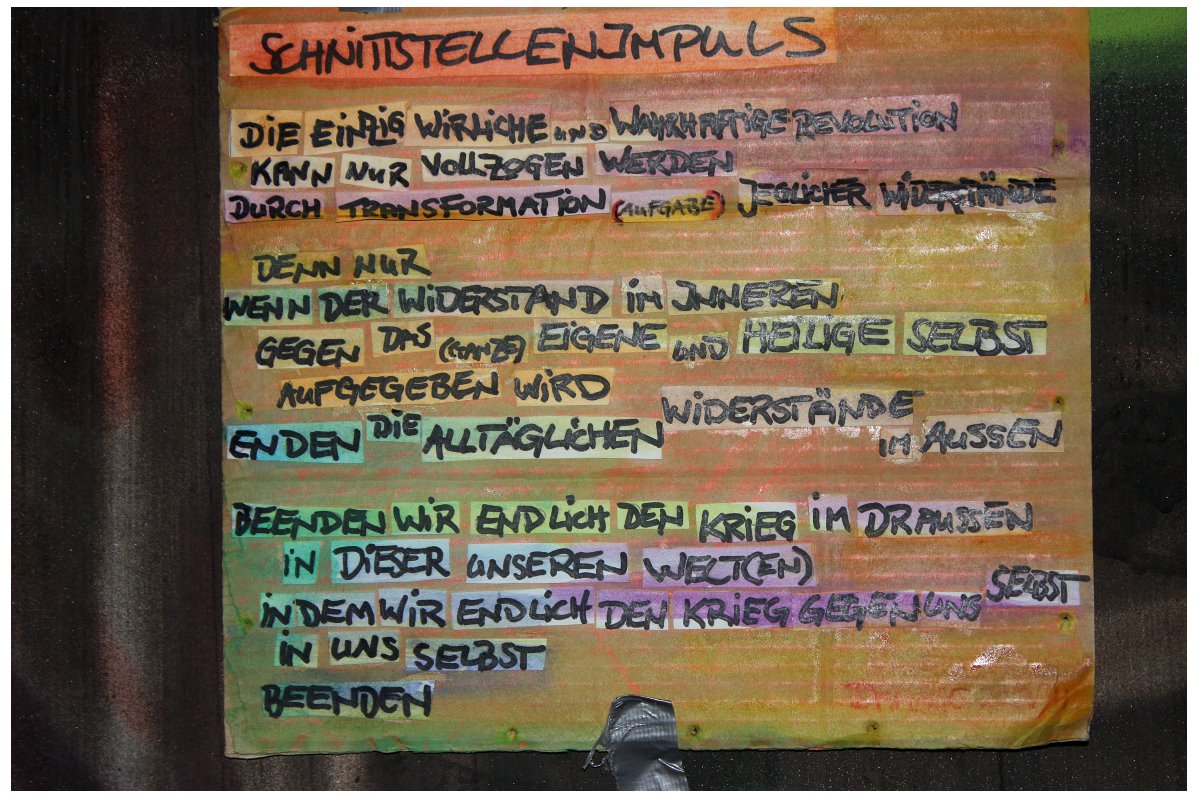 SCHNITTSTELLENIMPULS
DIE EINZIG WIRLICHE UND WAHRHAFTIGE REVOLUTION
KANN NUR VOLLZOGEN WERDEN
DURCH TRANSFORMATION (AUFGABE) JEGLICHER WIDERSTÄNDE
DENN NUR
WENN DER WIDERSTAND IM INNEREN
GEGEN DAS (GANZE) EIGENE UND HEILIGE SELBST
AUFGEGEBEN WIRD
ENDEN DIE ALLTÄGLICHEN WIDERSTÄNDE
IM AUSSEN
BEENDEN WIR ENDLICH DEN KRIEG IM DRAUSSEN
IN DIESER UNSEREN WELT(EN)
INDEM WIR ENDLICH DEN KRIEG GEGEN UNS SELBST
IN UNS SELBST
BEENDEN